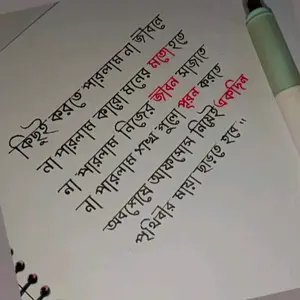 কিছুই করতে পারলাম না জীবনে
না পারলাম কারো মনের মতো হতে
না পারলাম নিজের জীবন সাজাতে
না পারলাম শখ গুলো পূরন করতে
অবশেষে আফসোস নিয়েই একদিন
পৃথিবীর মায়া ছাড়তে হবে।।